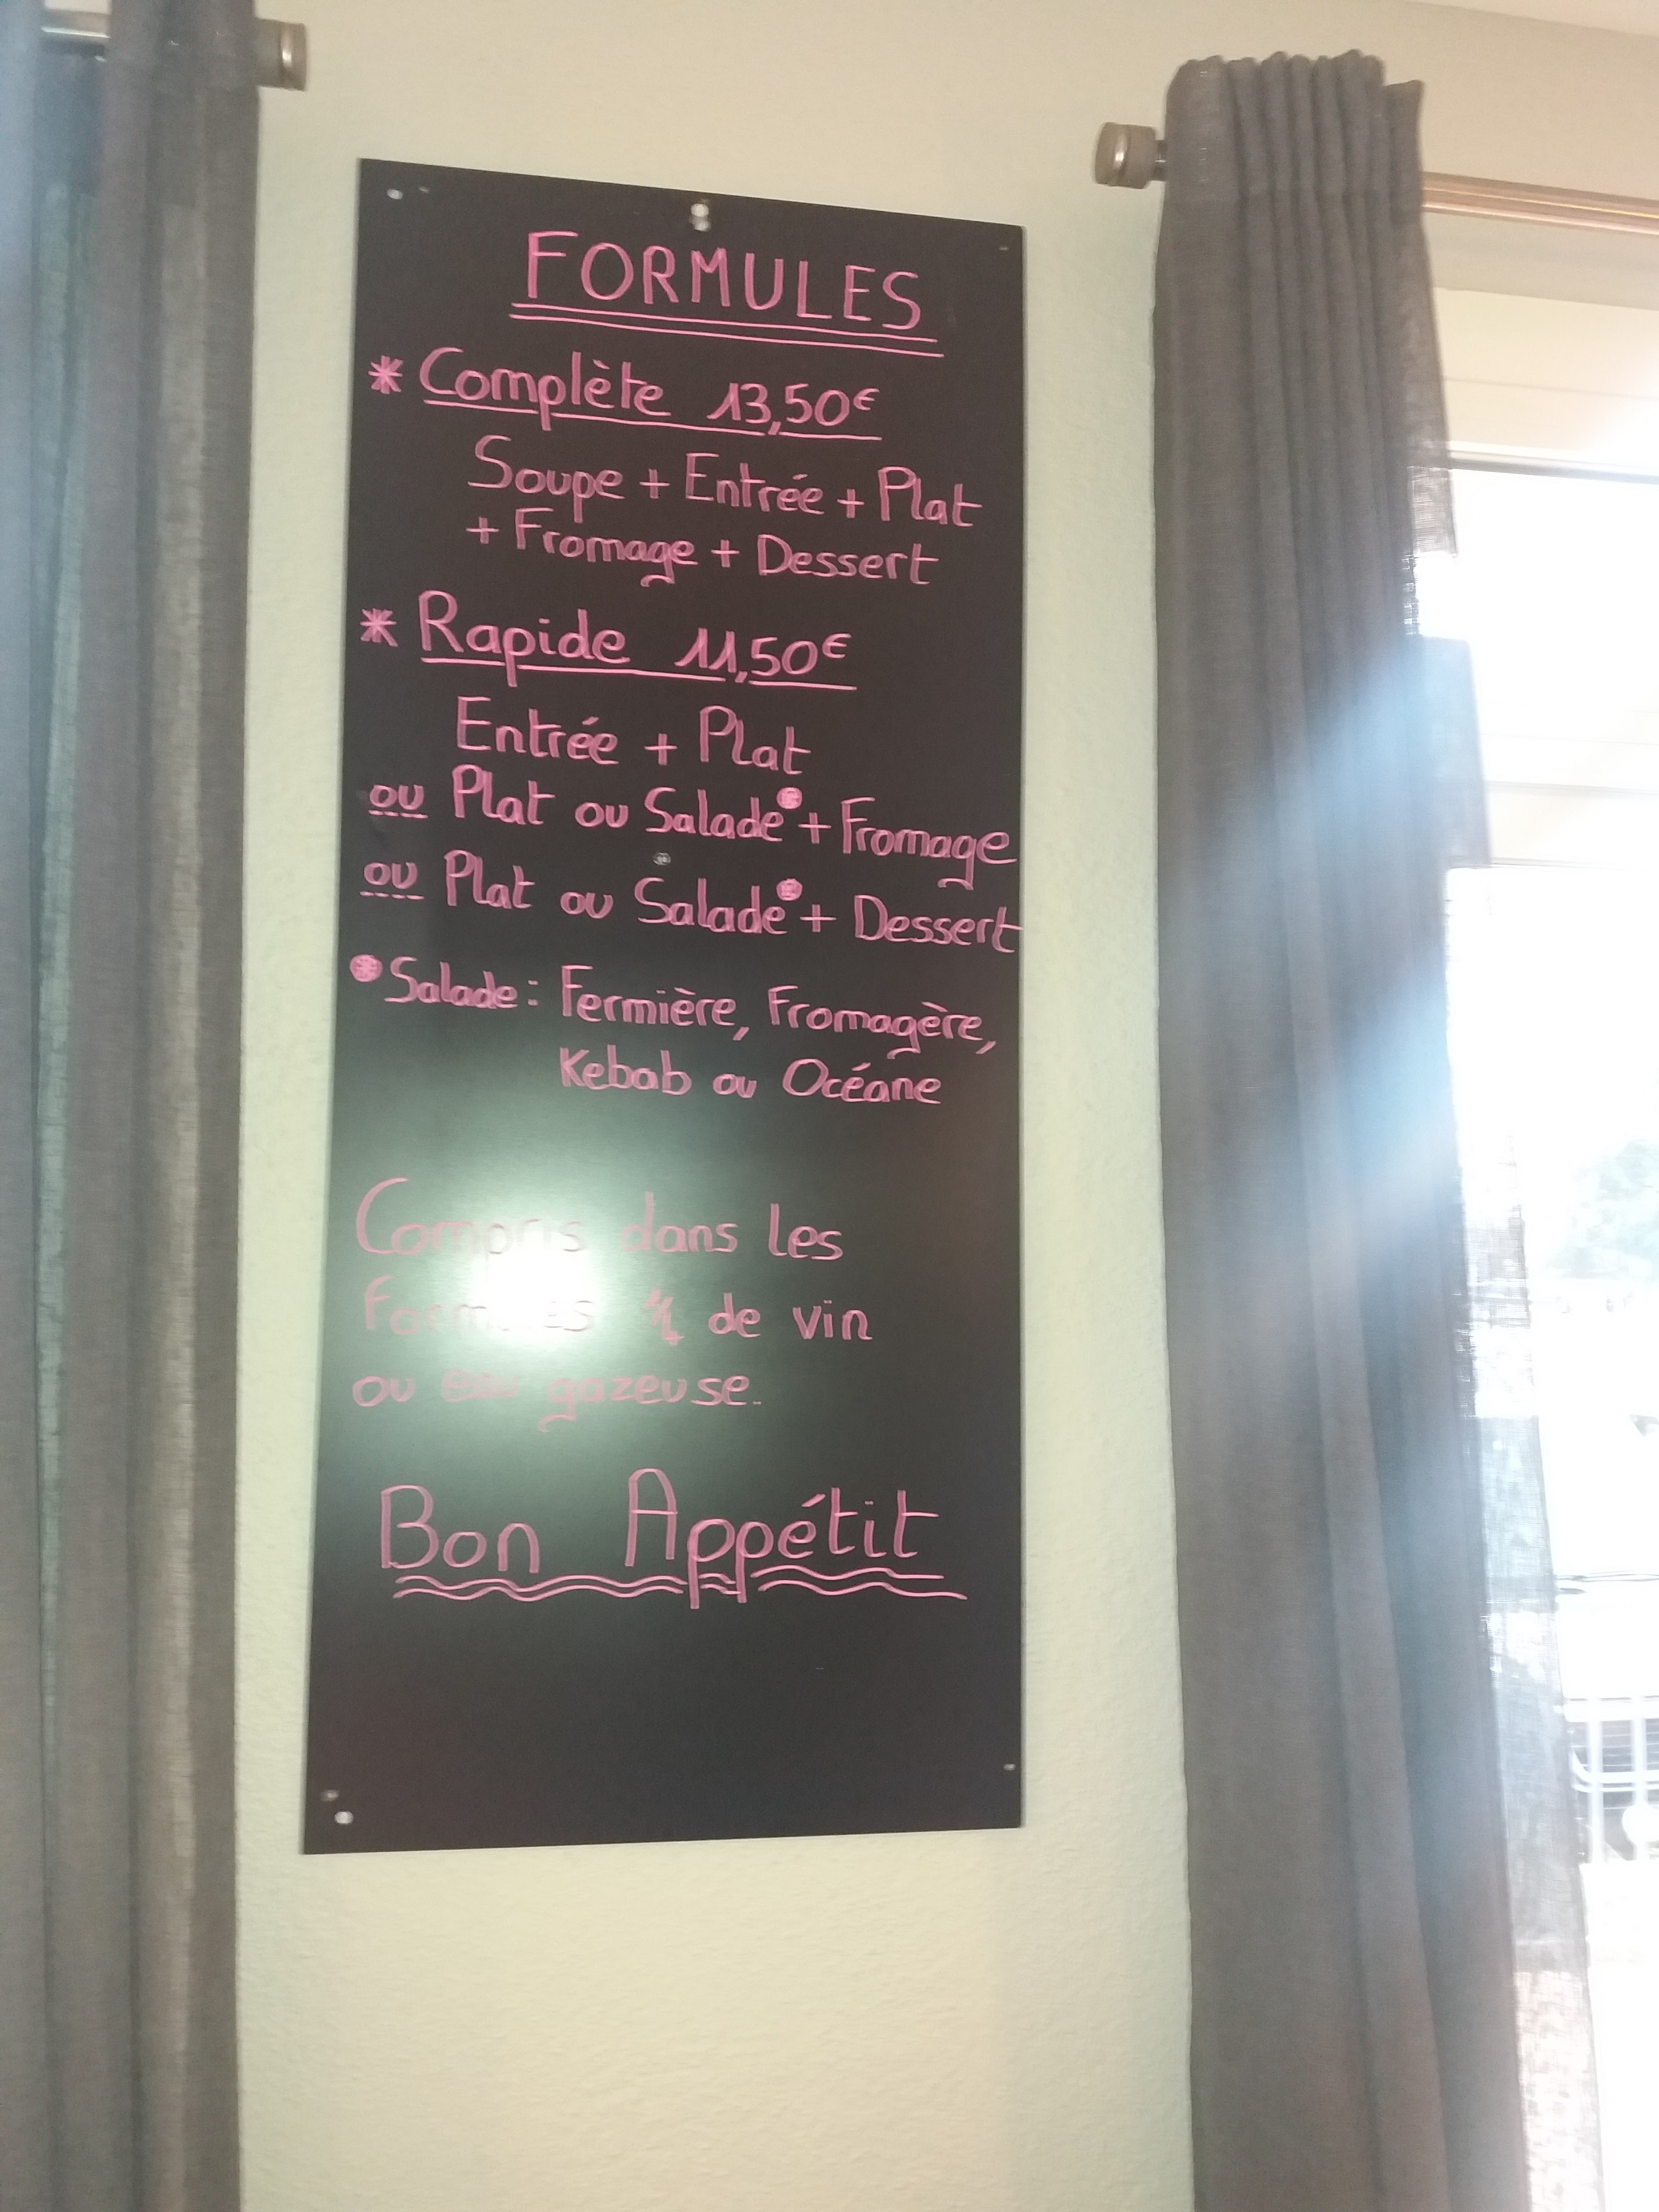 FORMULES
* Complète 13,50€
Soupe + Entrée + Plat
+ Fromage + Dessert
* Rapide 11,50€
Entrée + Plat
ou Plat ou Salade* + Fromage
ou Plat ou Salade* + Dessert
* Salade : Fermière, Fromagère,
Kebab ou Océane
Compris dans les
formules 1/4 de vin
ou eau gazeuse.
Bon Appétit